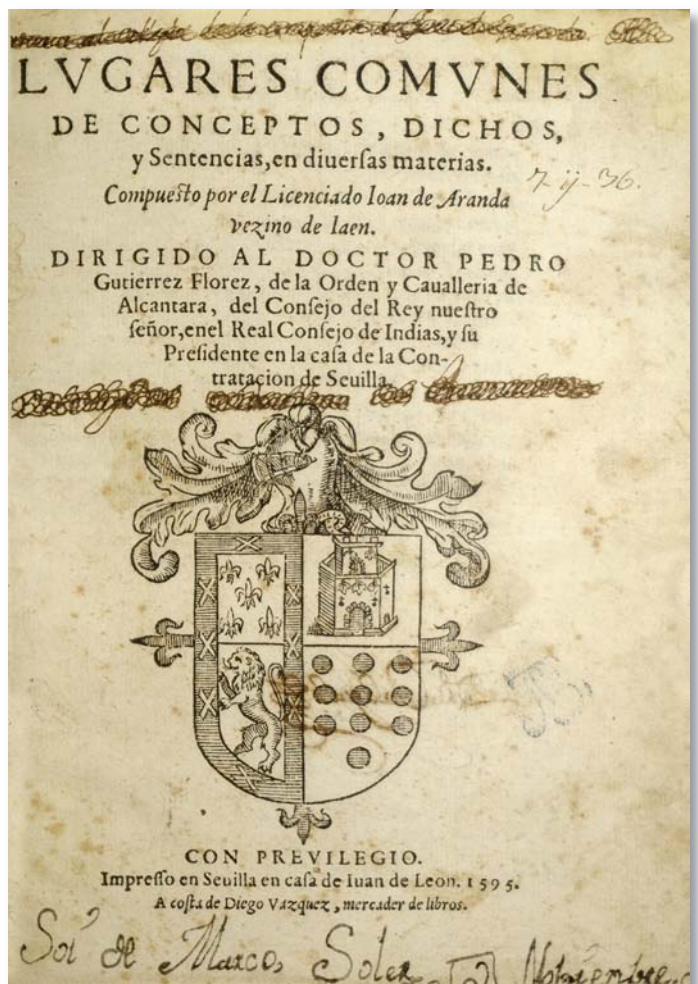 LVGARES COMVNES
DE CONCEPTOS, DICHOS,
y Sentencias, en diuerſas materias.
7-ij-36.
Compuesto por el Licenciado Ioan de Aranda
vezino de Iaen.
DIRIGIDO AL DOCTOR PEDRO
Gutierrez Florez, de la Orden y Caualleria de
Alcantara, del Conſejo del Rey nueſtro
ſeñor, enel Real Conſejo de Indias, y ſu
Preſidente en la caſa de la Con-
tratacion de Seuilla.
CON PREVILEGIO.
Impreſſo en Seuilla en caſa de Iuan de Leon. 1595.
A coſta de Diego Vazquez, mercader de libros.
Soi de Marco Soler Nobiembre